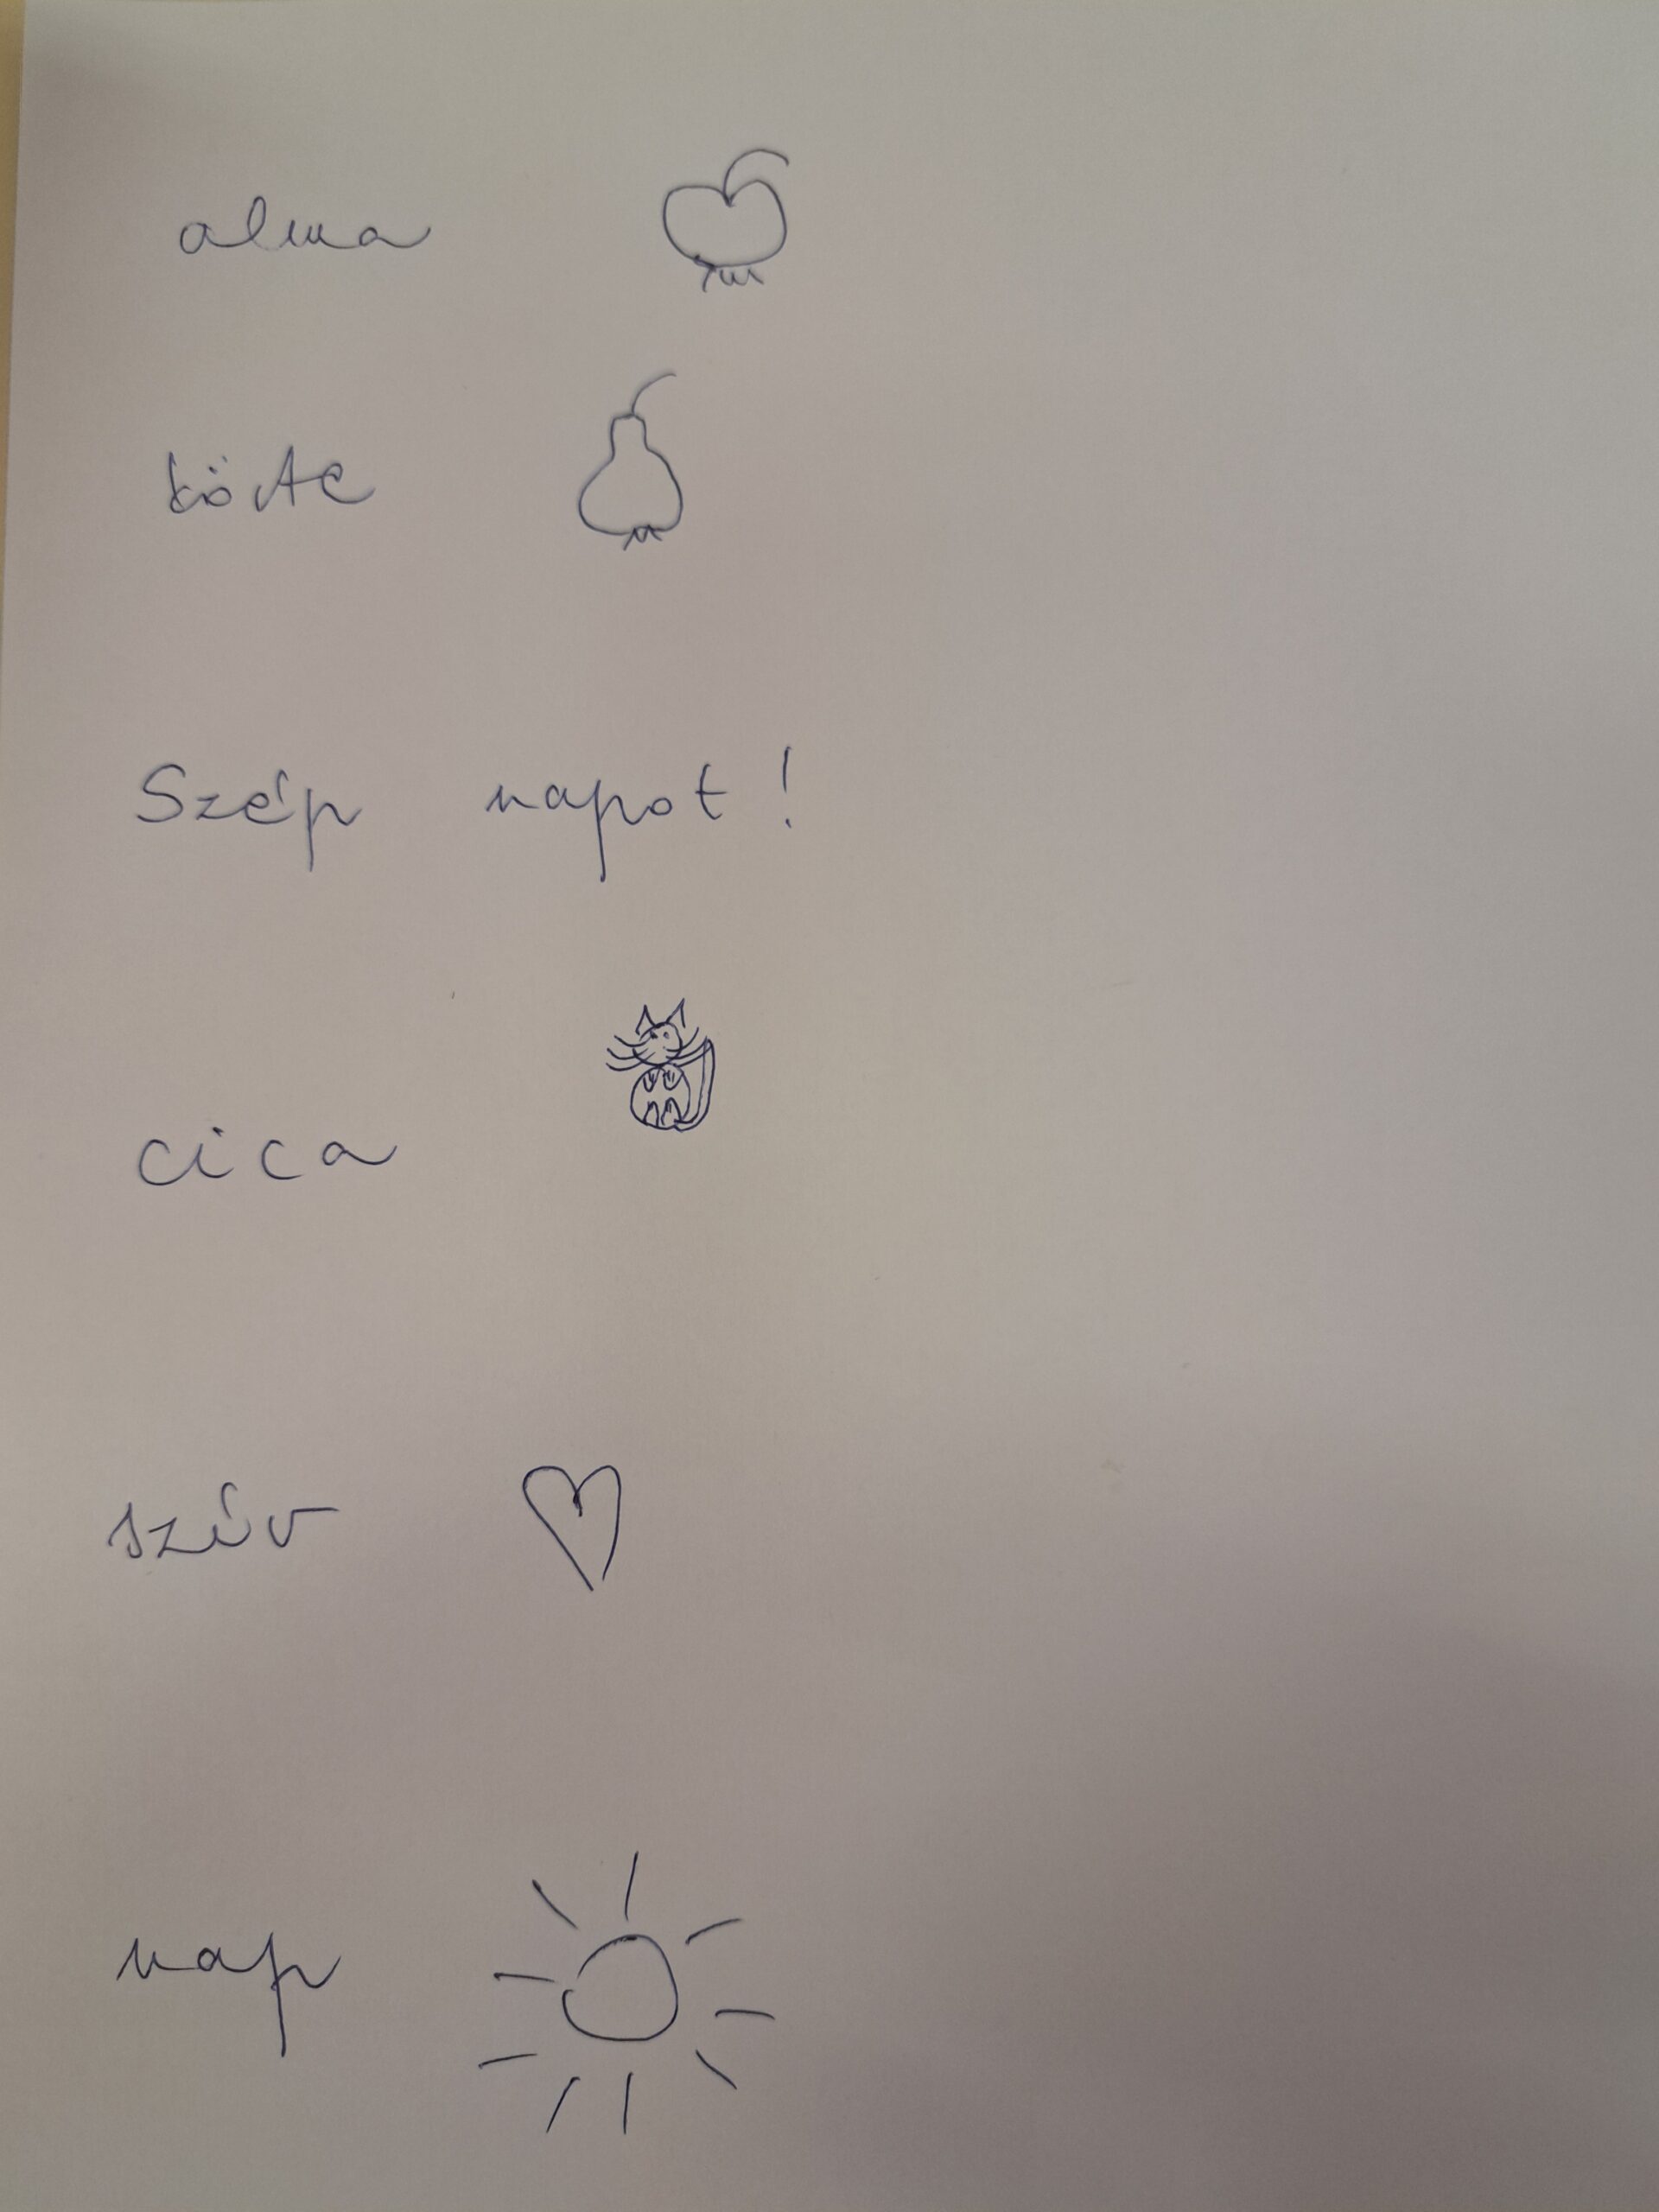 alma
körte
Szép napot!
cica
szív
nap